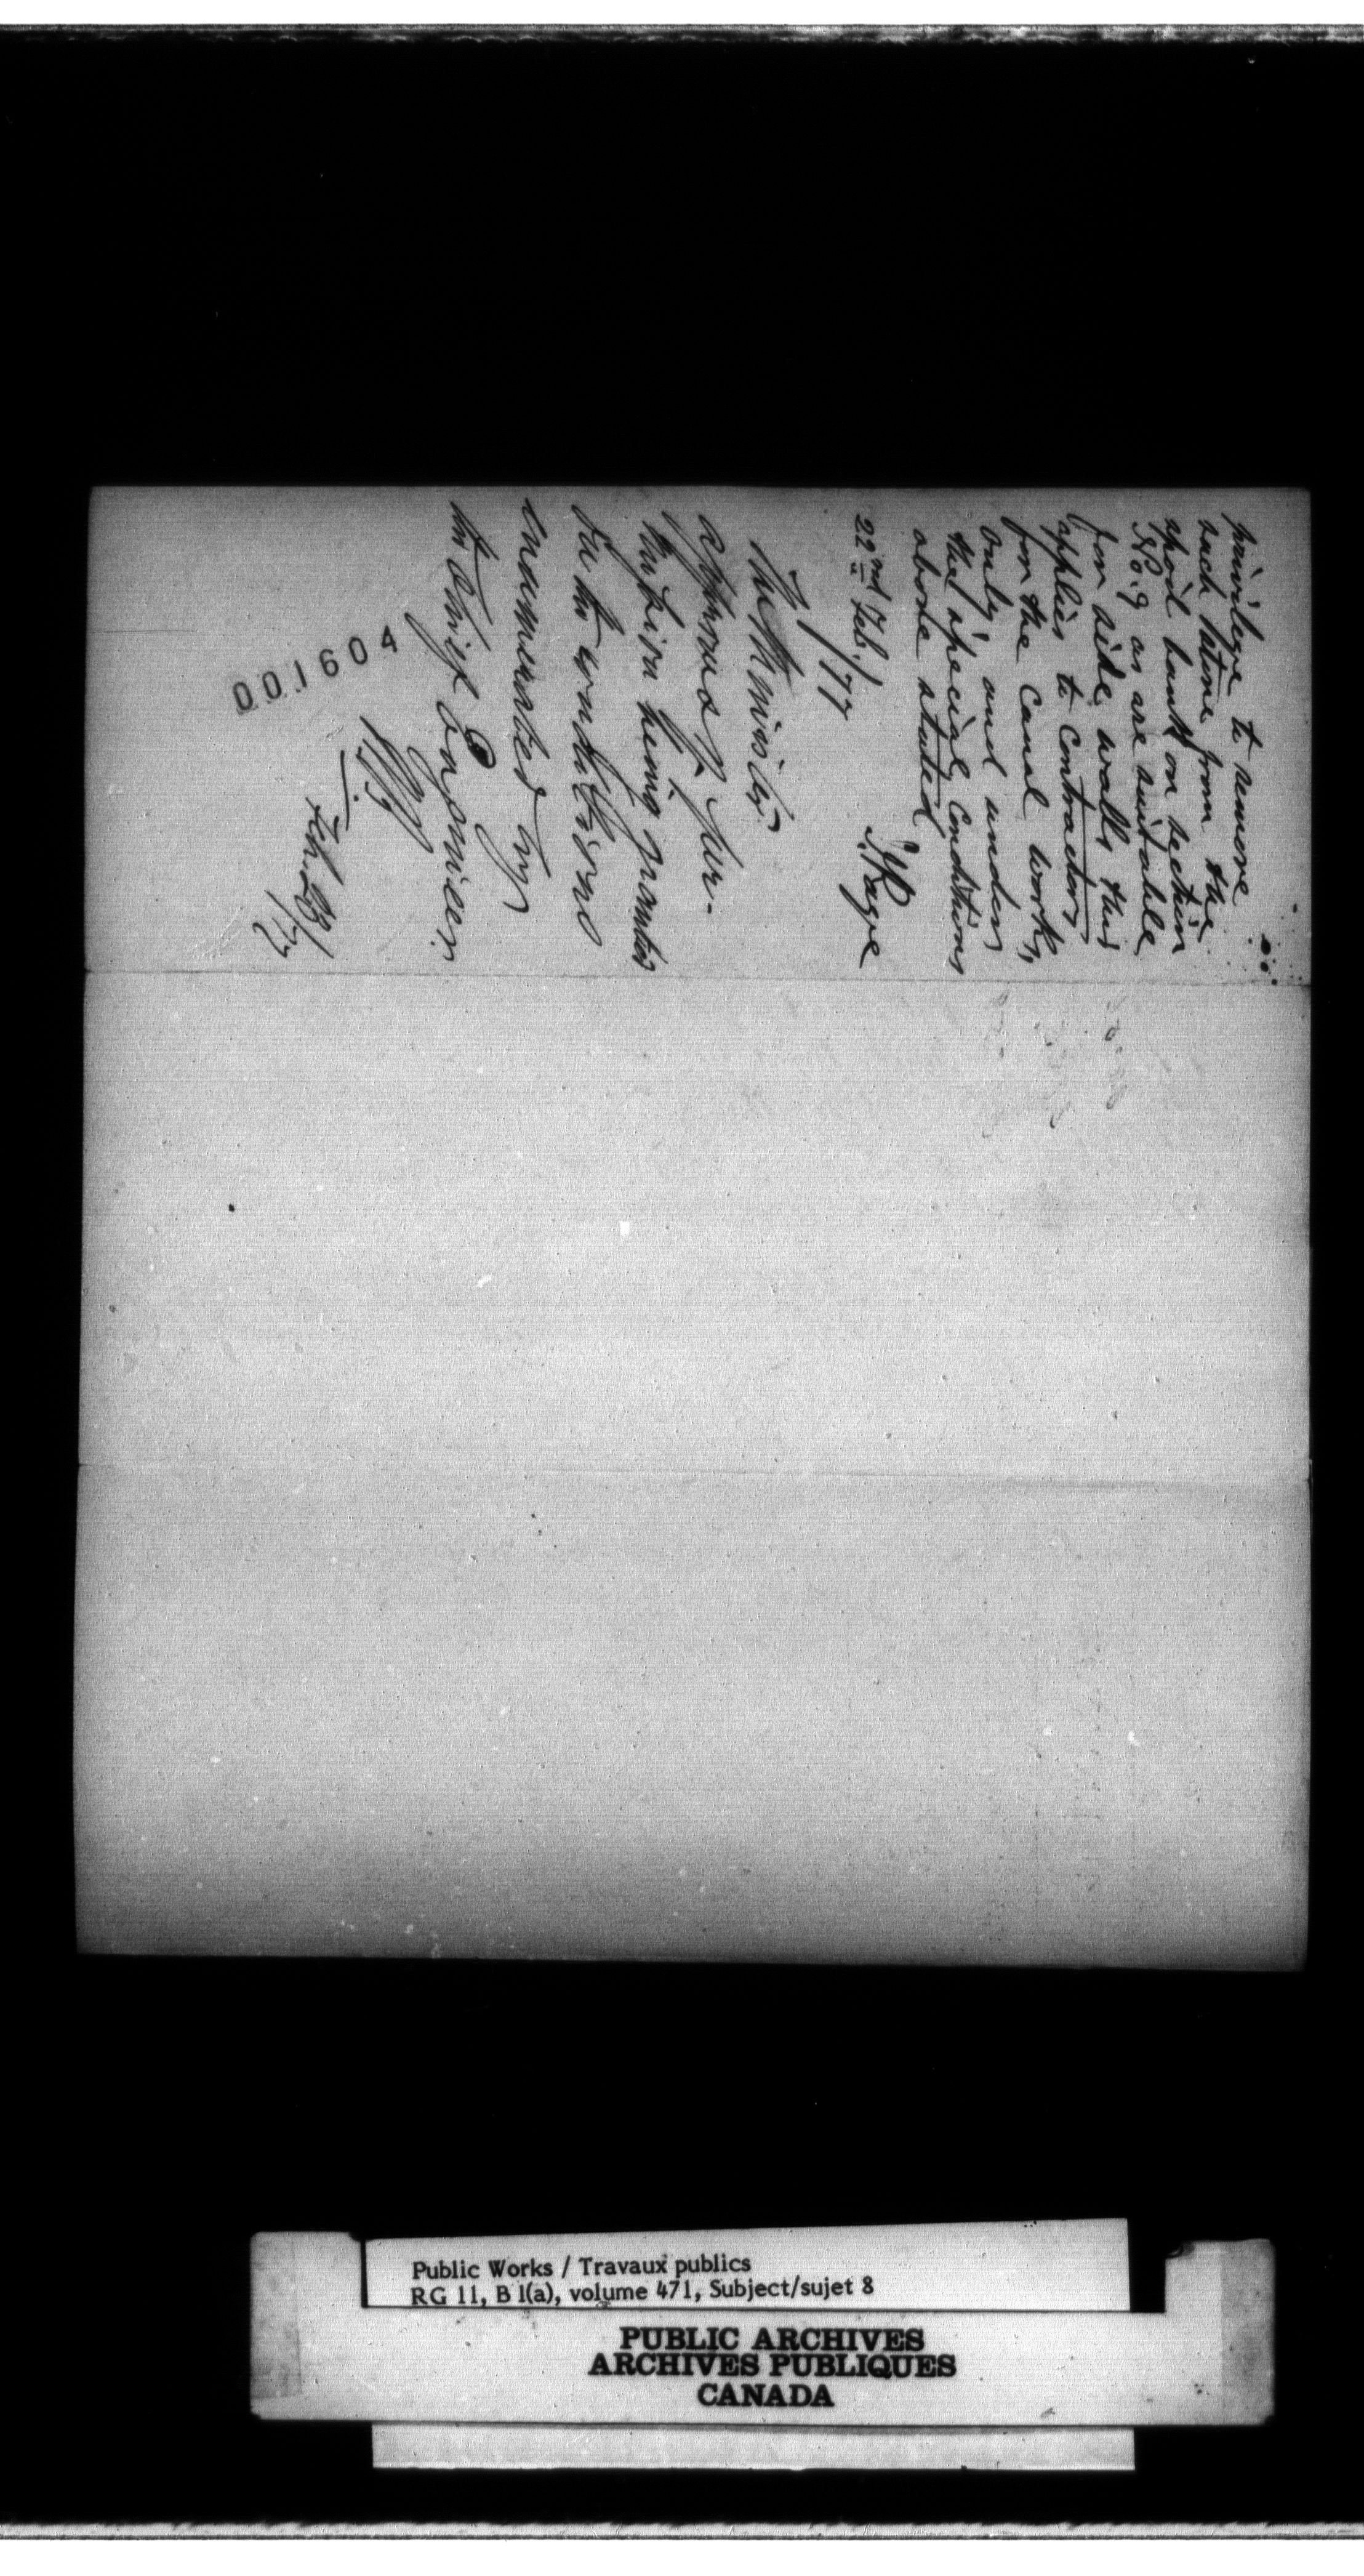 privilege to remove
such stone from the
spoil bank on section
No. 9 as are suitable
for side walls this
applies to contractors
for the Canal works,
only, and under
the special conditions
above stated
J. Page
22nd Feb./77
The Minister
approves of per-
mission being granted
on the conditions
enumerated by
the Chief Engineer.
Feb 23/77
001604
Public Works / Travaux publics
RG 11, B 1(a), volume 471, Subject/sujet 8
PUBLIC ARCHIVES
ARCHIVES PUBLIQUES
CANADA